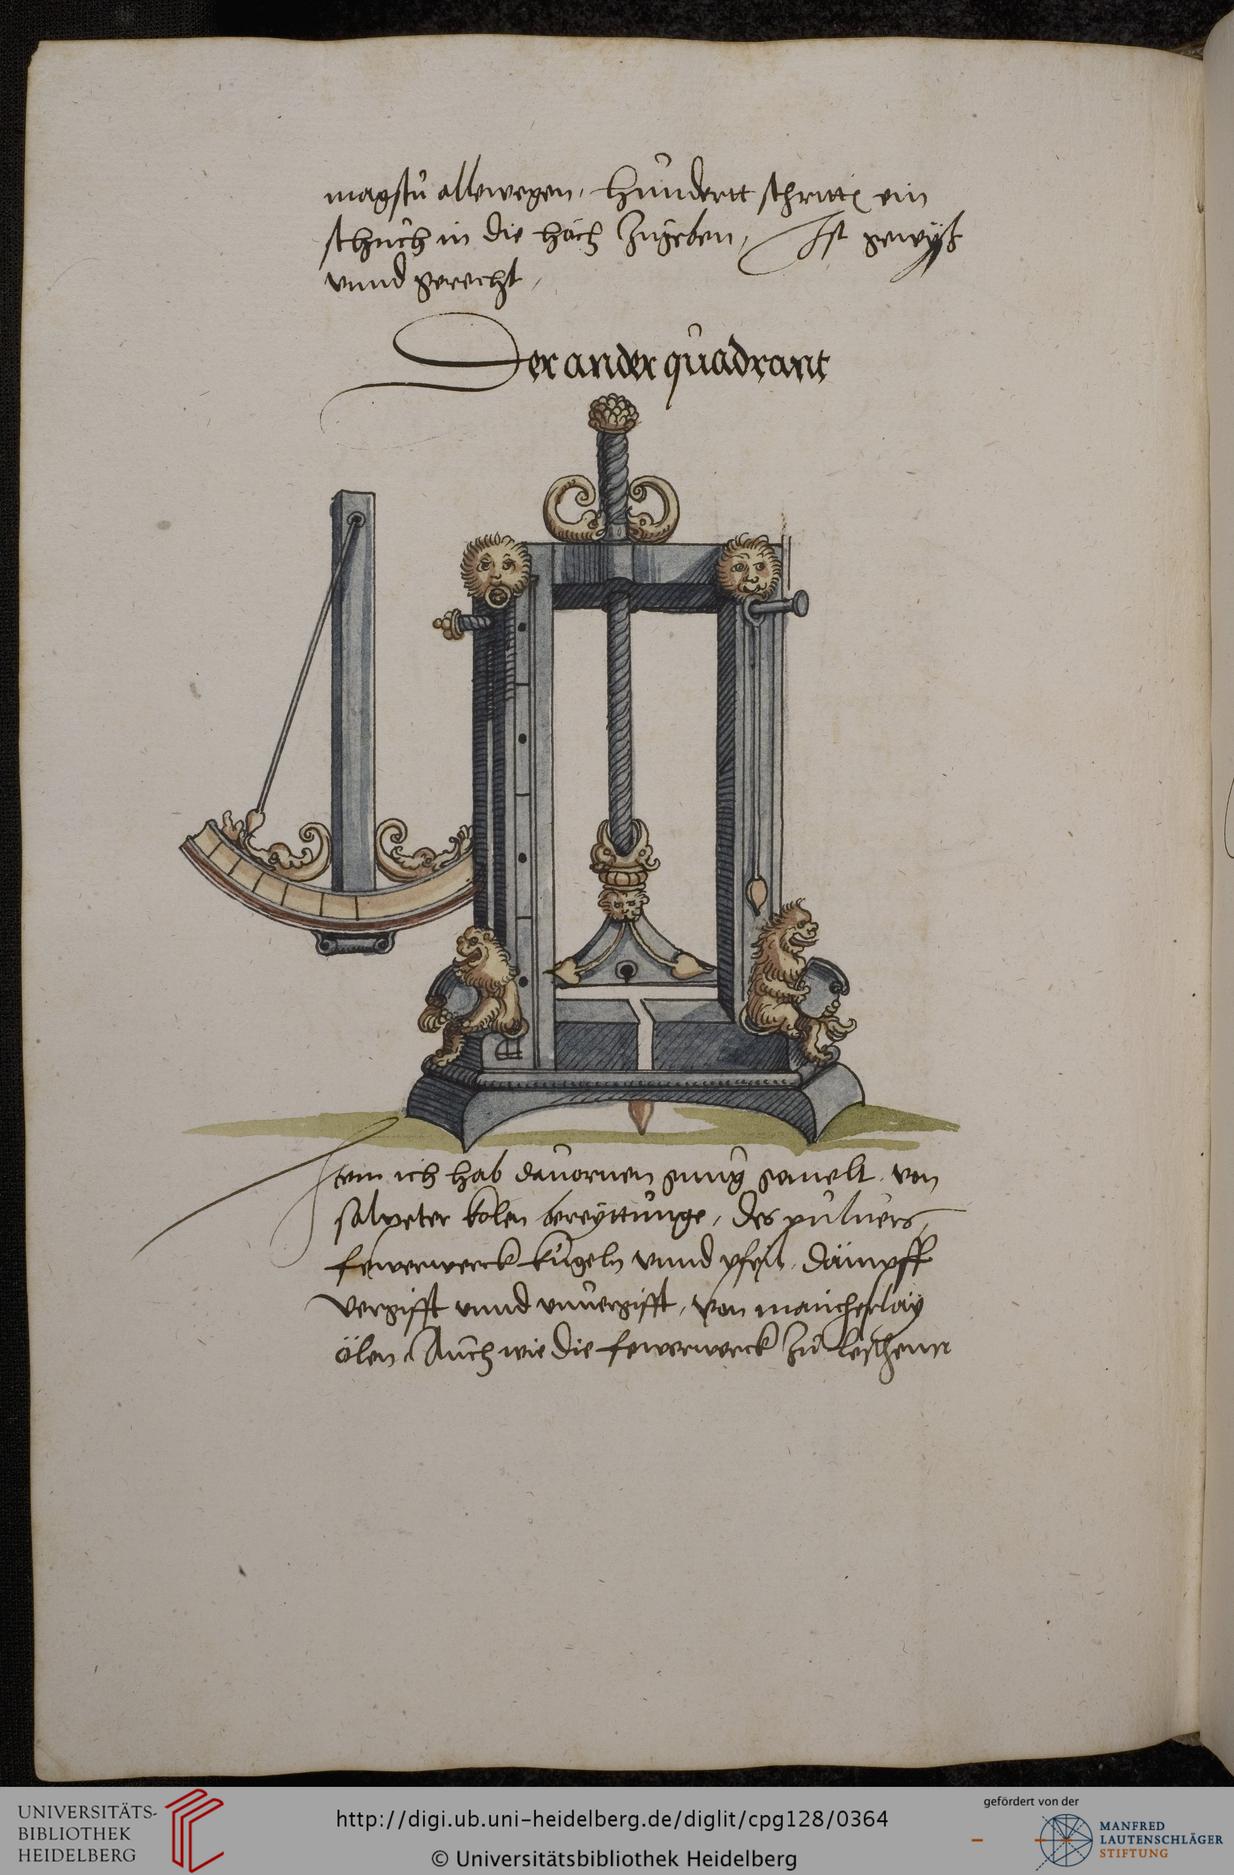 magstu allewegen, hundertt schritt ein
schuch in die höch zugeben, Ist gewyß
vnnd gerecht,
Der ander quadrant
Item ich hab dauornen gnug gemelt von
salpeter kolen bereyttunge, des puluers,
fewerwerck kugeln vnnd pfeil, dämpff
vergifft vnnd vnuergifft, von mancherlay
ölen, Auch wie die fewerwerck zu leschenn
UNIVERSITÄTS-
BIBLIOTHEK
HEIDELBERG
http://digi.ub.uni-heidelberg.de/diglit/cpg128/0364
© Universitätsbibliothek Heidelberg
gefördert von der
MANFRED
LAUTENSCHLÄGER
STIFTUNG